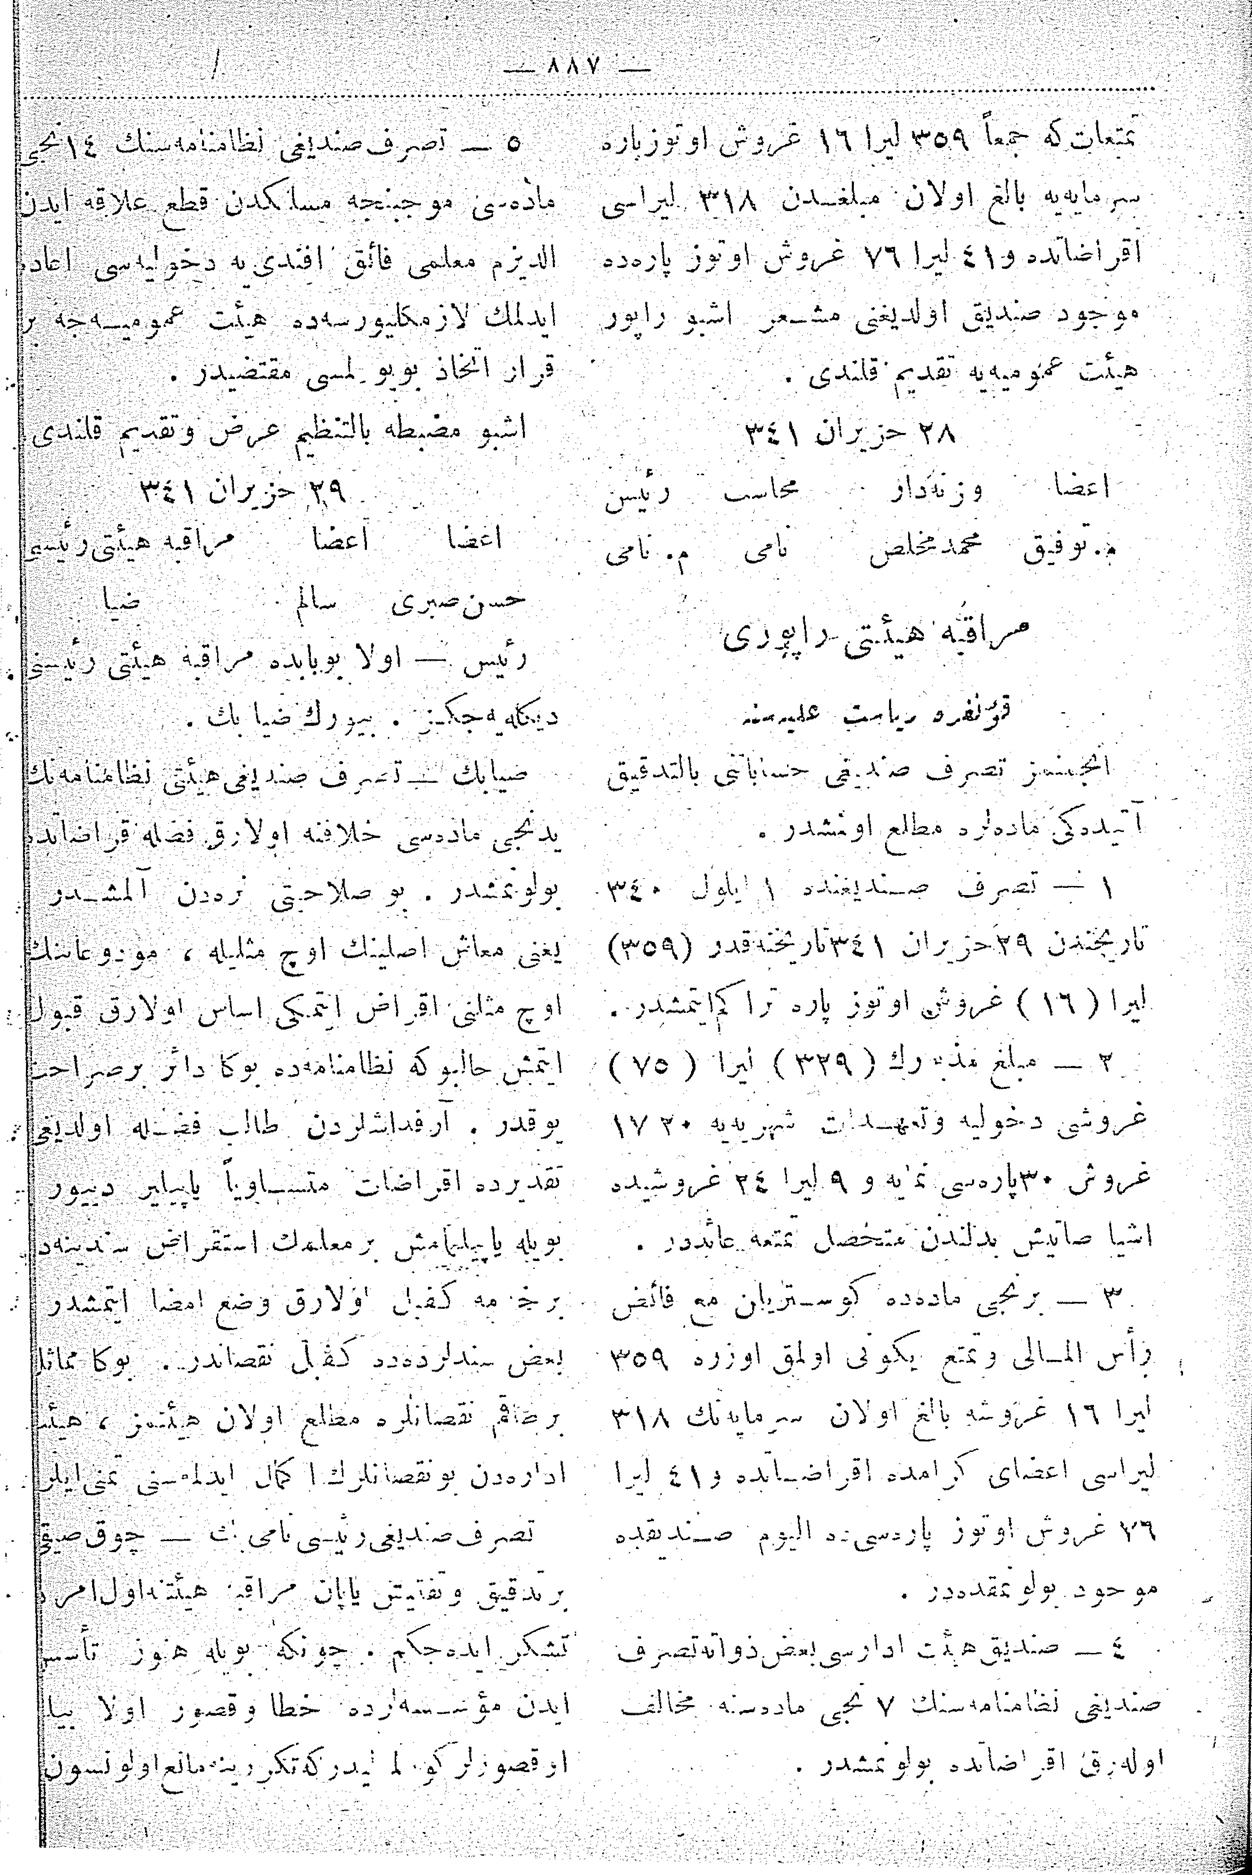 — ٨٨٧ —
تمتعات‌كه جمعاً ٣٥٩ ليرا ١٦ غروش اوتوزپاره
سرمايه‌يه بالغ اولان مبلغدن ٣١٨ ليراسى
اقراضاتده و٤١ ليرا ٧٦ غروش اوتوز پاره‌ده
موجود صنديق اولديغنى مشعر اشبو راپور
هيئت عموميه‌يه تقديم قلندى .
٢٨ حزيران ٣٤١
اعضا وزنه‌دار محاسب رئيس
م. توفيق محمدمخلص نامى م. نامى
مراقبه هيئتى راپورى
قونغره رياست عليه‌سنه
انجمنمز تصرف صنديقى حساباتنى بالتدقيق
آتيده‌كى ماده‌لره مطلع اولمشدر .
١ — تصرف صنديغنده ١ ايلول ٣٤٠
تاريخندن ٢٩ حزيران ٣٤١ تاريخنه‌قدر (٣٥٩)
ليرا (١٦) غروش اوتوز پاره تراكم‌ايتمشدر .
٢ — مبلغ مذبورك (٣٢٩) ليرا (٧٥)
غروشى دخوليه وتعهدات شهريه‌يه ٢٠ ١٧
غروش ٣٠پاره‌سى نمايه و ٩ ليرا ٢٤ غروشيده
اشيا صاتيش بدلندن متحصل تمتعه عائددر .
٣ — برنجى ماده‌ده كوستريلن مع فائض
رأس المالى وتمتع يكونى اولمق اوزره ٣٥٩
ليرا ١٦ غروشه بالغ اولان سرمايه‌نك ٣١٨
ليراسى اعضاى كرامده اقراضاتده و٤١ ليرا
٧٦ غروش اوتوز پاره‌سى‌ده اليوم صنديقده
موجود بولونمقده‌در .
٤ — صنديق هيئت ادارسى بعض ذواته‌تصرف
صنديغى نظامنامه‌سنك ٧ نجى ماده‌سنه مخالف
اوله‌رق اقراضاتده بولونمشدر .
٥ — تصرف‌صنديغى نظامنامه‌سنك ١٤نجى
ماده‌سى موجبنجه مسلكدن قطع علاقه ايدن
الديزم معلمى فائق افندى‌يه دخوليه‌سى اعاده
ايدلمك لازمكليورسه‌ده هيئت عموميه‌جه بر
قرار اتخاذ بويورلمسى مقتضيدر .
اشبو مضبطه بالتنظيم عرض وتقديم قلندى
٢٩ حزيران ٣٤١
اعضا اعضا مراقبه هيئتى‌رئيسى
حسن‌صبرى سالم ضيا
رئيس — اولا بوبابده مراقبه هيئتى رئيسنى
ديكله‌يه‌جكز . بيورك ضيا بك .
ضيابك — تصرف صنديغى‌هيئتى نظامنامه‌نك
يدنجى ماده‌سى خلافنه اولارق فضله قراضاتده
بولونمشدر . بو صلاحيتى نره‌دن آلمشدر
يعنى معاش اصلينك اوچ مثليله ، مودوعاتنك
اوچ مثلنى اقراض ايتمكى اساس اولارق قبول
ايتمش حالبوكه نظامنامه‌ده بوكا دائر برصراحت
يوقدر . آرقداشلردن طالب فضله اولديغى
تقديرده اقراضات متساوياً ياپيلير دييور
بويله ياپيلمامش برمعلمك استقراض سندينه‌ده
برخدمه كفيل اولارق وضع امضا ايتمشدر
بعض سندلرده‌ده كفيل نقصاندر . بوكا مماثل
برطاقم نقصانلره مطلع اولان هيئتمز ، هيئت
اداره‌دن بونقصانلرك اكمال ايدلمسنى تمنى‌ايلر
تصرف‌صنديغى‌رئيسى‌نامى بك — چوق‌صيقى
برتدقيق وتفتيش ياپان مراقبه هيئتنه‌اول‌امرده
تشكر ايده‌جكم . چونكه بويله هنوز تأسس
ايدن مؤسسه‌لرده خطا وقصور اولا بيلير
اوقصورلركورلمليدركه‌تكررينه‌مانع‌اولونسون